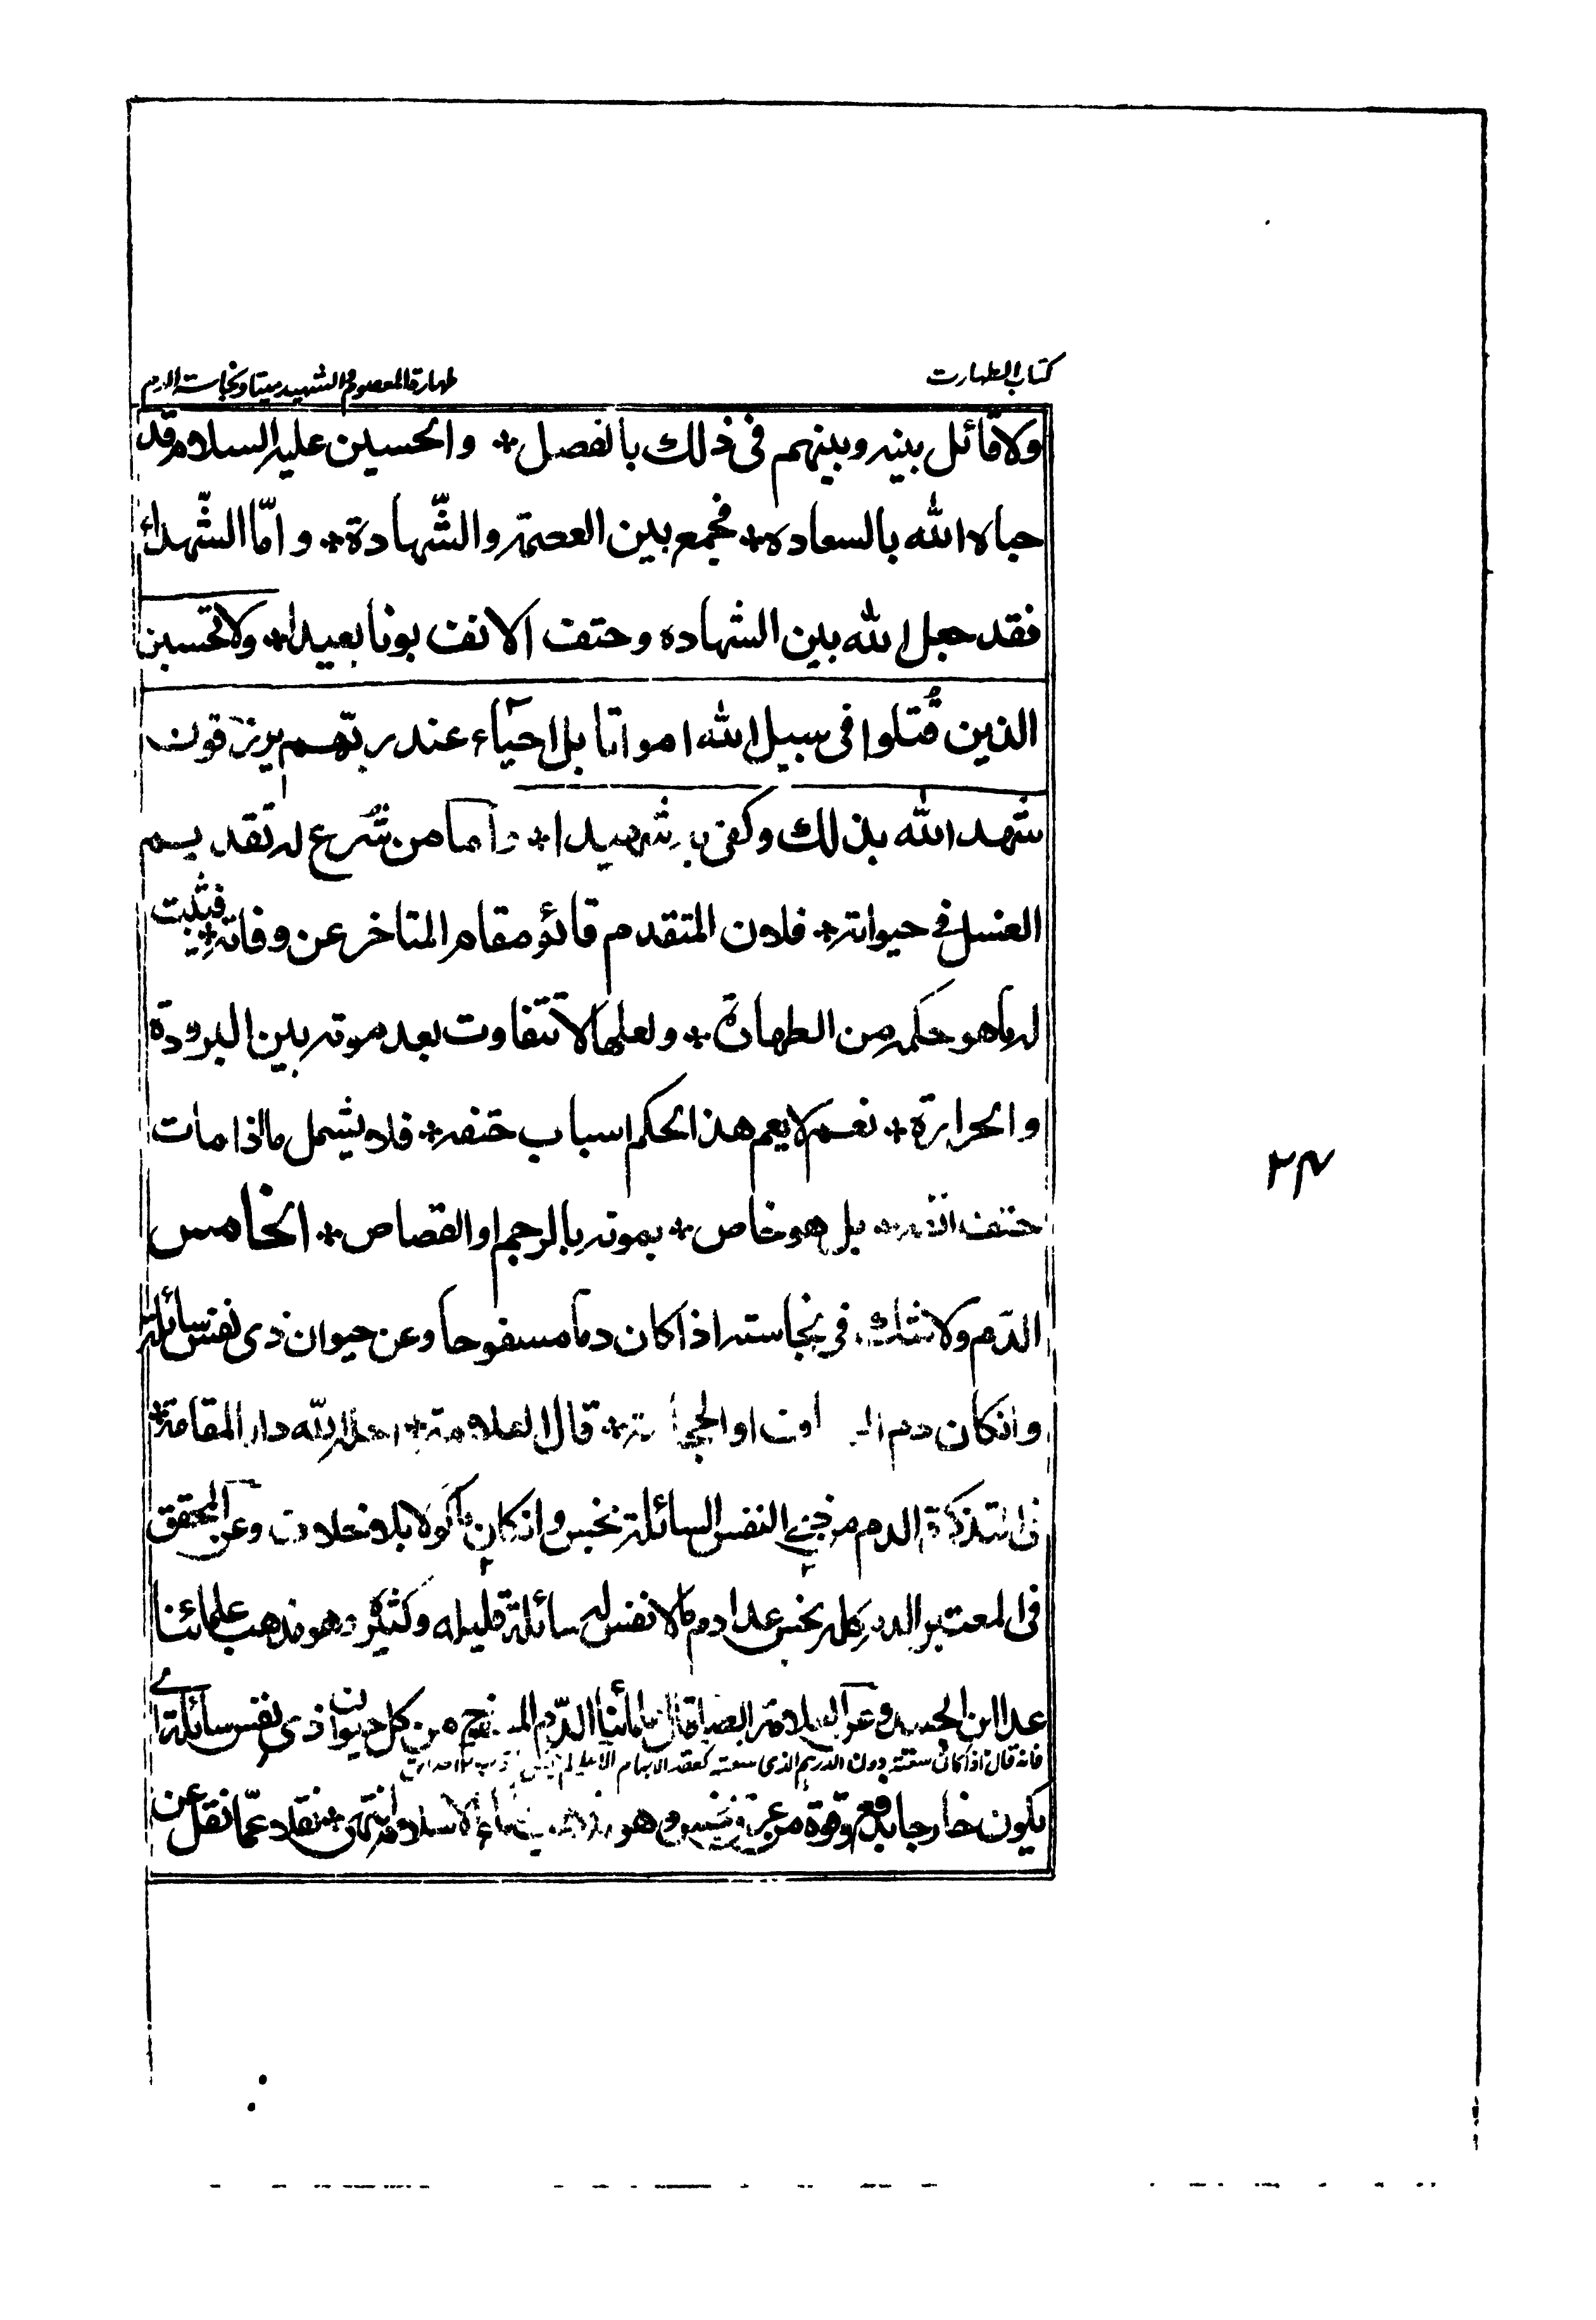 كتاب الطهارت
طهارة المعصوم والشهيد ميتا ونجاسة الدم
ولا قائل بينه وبينهم فى ذلك بالفصل * والحسين عليه السلام قد
حباه الله بالسعاده * فجمع بين العصمة والشّهادة * وامّا الشّهداء
فقد جعل الله بين الشهاده وحتف الانف بونا بعيدا * ولا تحسبن
الذين قُتلوا فى سبيل الله امواتا بل احيَاء عند ربّهم يرزقون
شهد الله بذلك وكفى به شهيدا * واما من شُرع له تقديم
الغسل فى حيواته * فلان المتقدم قائم مقام المتاخر عن وفاته * فيثبت
له ما هو حكمه من الطهارة * ولعلها لا تتفاوت بعد موته بين البرودة
والحرارة * نعم لا يعم هذا الحكم اسباب حتفه * فلا يشمل ما اذا مات
حتف انفه * بل هو خاص * بموته بالرجم او القصاص * الخامس
الدّم ولا شك فى نجاسته اذا كان دما مسفوحا وعن حيوان ذى نفس سائلة
وانكان دم او الحج * قال العلامة * احله الله دار المقامة *
فى التذكرة الدم من ذى النفس السائلة نجس وانكان ماكولا بلا خلاف وعن المحقق
فى المعتبر الدم كله نجس عدا دم ما لا نفس له سائلة قليله وكثيره وهو مذهب علمائنا
عدا ابن الجنيد وعن العلامة ايضا قال علمائنا الدّم المسفوح من كل حيوان ذى نفس سائلة اى
فانه قال اذا كان سعته دون الدرهم الذى سعته كعقد الابهام الاعلى لم ينجس
يكون خارجا بدفع وقوة من عرق نجس وهو مذهب علماء الاسلام انتهى * فقد عمّا نقل عن
٢٤